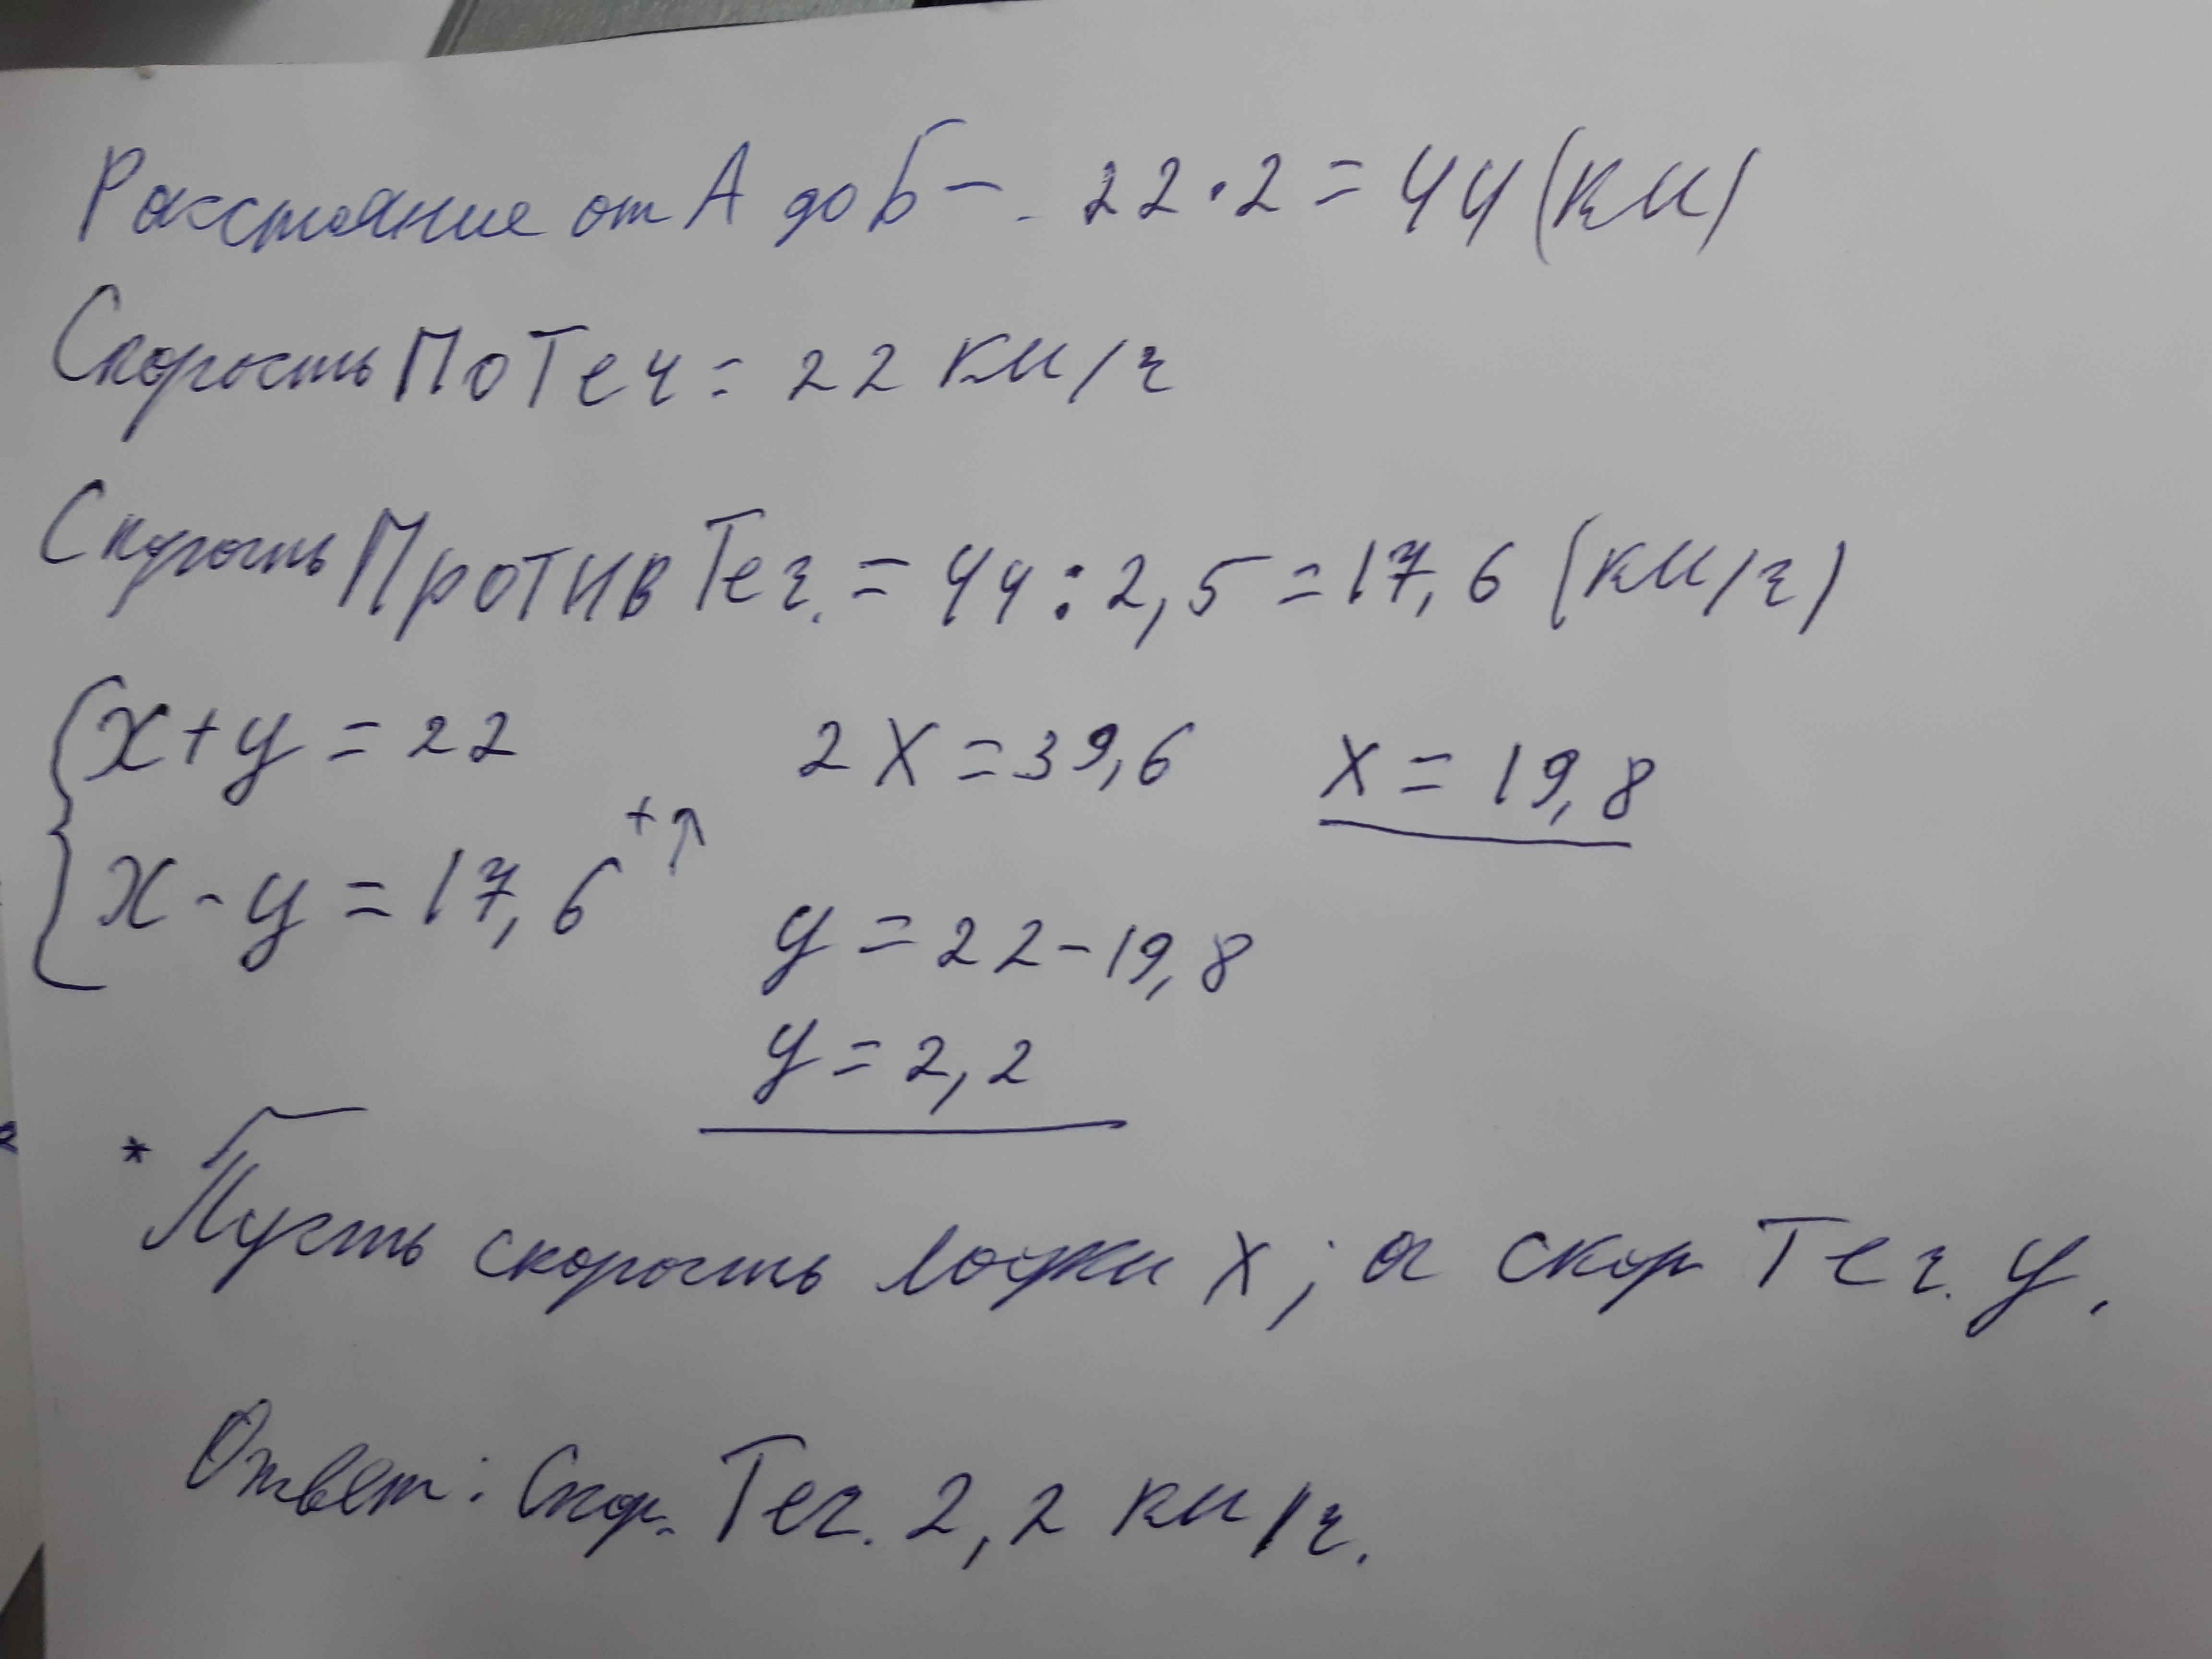 Расстояние от А до Б - 22 · 2 = 44 (км)
Скорость По Теч = 22 км/ч
Скорость Против Теч. = 44 : 2,5 = 17,6 (км/ч)
x + y = 22 2x = 39,6 x = 19,8
x - y = 17,6 +↑
y = 22 - 19,8
y = 2,2
* Пусть скорость лодки x; а скор Теч. y.
Ответ: Скор. Теч. 2,2 км/ч.